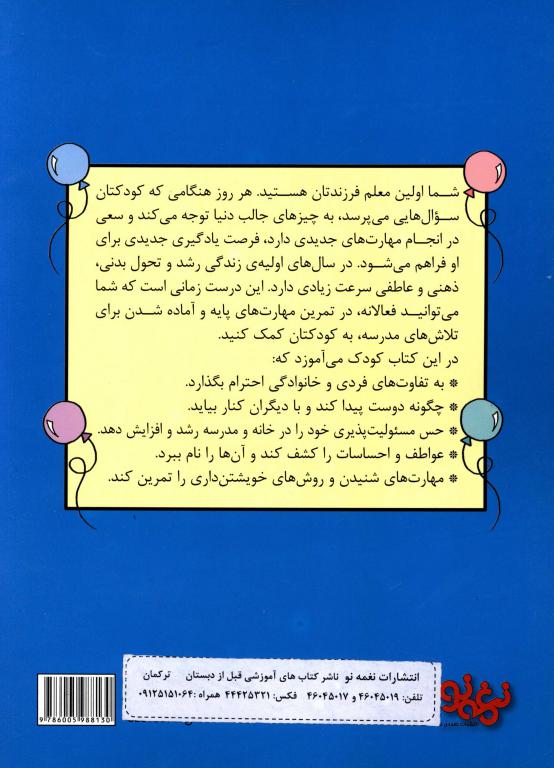 شما اولین معلم فرزندتان هستید. هر روز هنگامی که کودکتان
سؤال‌هایی می‌پرسد، به چیزهای جالب دنیا توجه می‌کند و سعی
در انجام مهارت‌های جدیدی دارد، فرصت یادگیری جدیدی برای
او فراهم می‌شود. در سال‌های اولیه‌ی زندگی رشد و تحول بدنی،
ذهنی و عاطفی سرعت زیادی دارد. این درست زمانی است که شما
می‌توانید فعالانه، در تمرین مهارت‌های پایه و آماده شدن برای
تلاش‌های مدرسه، به کودکتان کمک کنید.
در این کتاب کودک می‌آموزد که:
* به تفاوت‌های فردی و خانوادگی احترام بگذارد.
* چگونه دوست پیدا کند و با دیگران کنار بیاید.
* حس مسئولیت‌پذیری خود را در خانه و مدرسه رشد و افزایش دهد.
* عواطف و احساسات را کشف کند و آن‌ها را نام ببرد.
* مهارت‌های شنیدن و روش‌های خویشتن‌داری را تمرین کند.
انتشارات نغمه نو ناشر کتاب های آموزشی قبل از دبستان ترکمان
تلفن: ۴۶۰۴۵۰۱۹ و ۴۶۰۴۵۰۱۷ فکس: ۴۴۴۲۵۳۲۱ همراه: ۰۹۱۲۵۱۵۱۰۶۴
نغمه نو
9 786005 988130